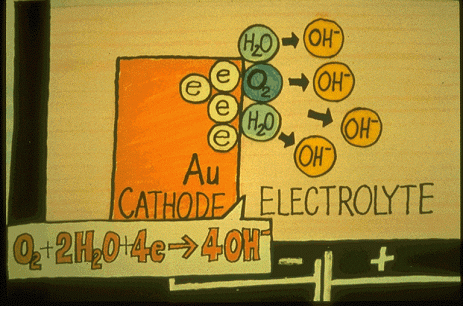 H₂O → OH⁻
e e O₂ → OH⁻
e H₂O → OH⁻
e OH⁻
Au
CATHODE ELECTROLYTE
O₂+2H₂O+4e→4OH⁻
− +